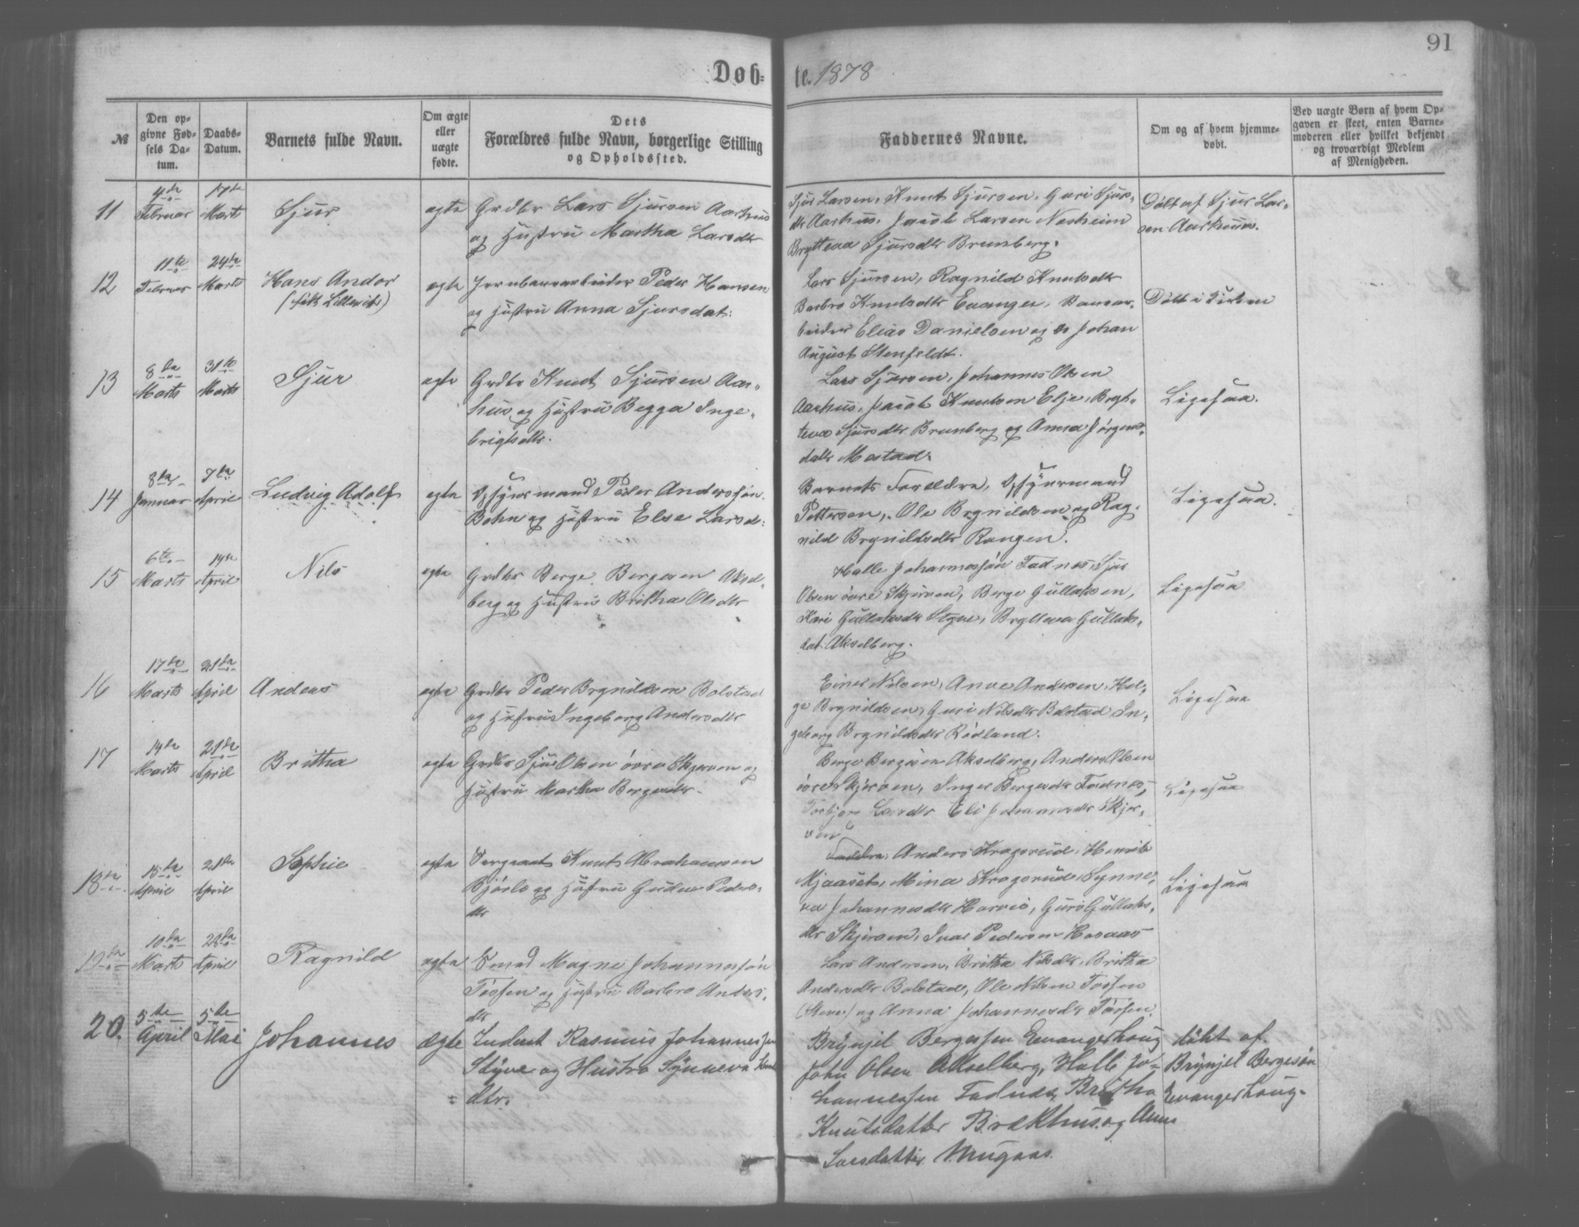 91
Døb= te. 1878
№
Den op-
givne Fød-
sels Da-
tum.
Daabs-
Datum.
Barnets fulde Navn.
Om ægte
eller
uægte
fødte.
Dets
Forældres fulde Navn, borgerlige Stilling
og Opholdssted.
Faddernes Navne.
Om og af hvem hjemme-
døbt.
Ved uægte Børn af hvem Op-
gaven er skeet, enten Barne-
moderen eller hvilket bekjendt
og troværdigt Medlem
af Menigheden.
11
4de Februar
17de Marts
Sjur
ægte
Grdbr Lars Sjursen Aarhus
og Hustru Martha Larsdtr
Sjur Larsen, Knut Sjursen, Guri Sjurs-
dtr Aarhus, Jacob Larsen Nesheim
Brytteva Sjursdtr Brunberg.
Døbt af Sjur Lar-
sen Aarhuus.
12
11te Februar
24de Marts
Hans Andor
ægte
Jernbanearbeider Peder Hansen
og Hustru Anna Sjursdat:
Lars Sjursen, Ragnild Knutsdtr
Barbro Knutsdtr Evanger, Banear-
beider Elias Danielsen og Johan
August Stenfeldt.
Døbt i Kirken
13
8de Marts
31te Marts
Sjur
ægte
Grdbr Knut Sjursen Aar-
hus og Hustru Begga Inge-
brigtsdtr.
Lars Sjursen, Johannes Olsen
Aarhus, Jacob Knutsen Elje, Bryt-
teva Sjursdtr Brunberg og Anna Jørgens-
datr Mestad.
Ligesaa.
14
8de Januar
7de April
Ludvig Adolf
ægte
Opsynsmand Peder Anderssøn
Bohn og Hustru Else Larsd:
Barnets Forældre, Opsynsmand
Pettersen, Ole Brynildsen og Rag-
nild Brynildsdtr Rongen.
Ligesaa.
15
6te Marts
14de April
Nils
ægte
Grdbr Berge Bergesen Aksel-
berg og Hustru Britha Olsdtr
Halle Johannessøn Fadnes, Sjur
Olsen øvre Skjerven, Berge Gullaksen,
Kari Gullaksdtr Styve, Brytteva Gullaks-
dat Akselberg.
Ligesaa
16
17de Marts
21de April
Anders
ægte
Grdbr Peder Brynildsen Bolstad
og Hustru Ingeborg Andersdtr
Einar Nilsen, Anve Andersen, Hel-
ge Brynildsen, Guri Nilsdtr Bolstad, In-
geborg Brynildsdtr Rødland.
Ligesaa
17
14de Marts
21de April
Britha
ægte
Grdbr Sjur Olsen øvre Skjerven og
Hustru Martha Bergesdtr.
Berge Bergesen Akselberg, Anders Olsen
øvre Skjerven, Inger Bergesdtr Fadnes,
Torbjør Larsdtr Eli Johannesdtr Skjer-
ven
Ligesaa
18de
15de April
21de April
Sophie
ægte
Sergeant Knut Abrahamsen
Bjørlo og Hustru Gudve Peders-
dtr
Anders Kragerud, Henrik
Mjaaseth, Mina Kragerud, Synne-
va Johannesdtr Horvei, Guro Gullaks-
dtr Skjerven, Ivar Pedersen Horaas
Ligesaa
19de
10de Marts
22de April
Ragnild
ægte
Smed Magne Johannessøn
Tøssen og Hustru Barbro Anders-
dtr
Lars Andersen, Britha Nilsdtr, Britha
Andersdtr Bolstad, Ole Nilsen Tøssen
og Anna Johannesdtr Tøssen.
20.
5te April
5te Mai
Johannes
ægte
Inderst Rasmus Johannessen
Styve og Hustru Synneva
dtr.
Brynjel Bergessen Evangerhoug
John Olsen Akselberg, Halle Jo-
hannessen Fadnes, Britha
Knutsdatter Brækhus og Anna
Larsdatter Mugaas.
døbt af
Brynjel Bergesen
Evangerhoug.